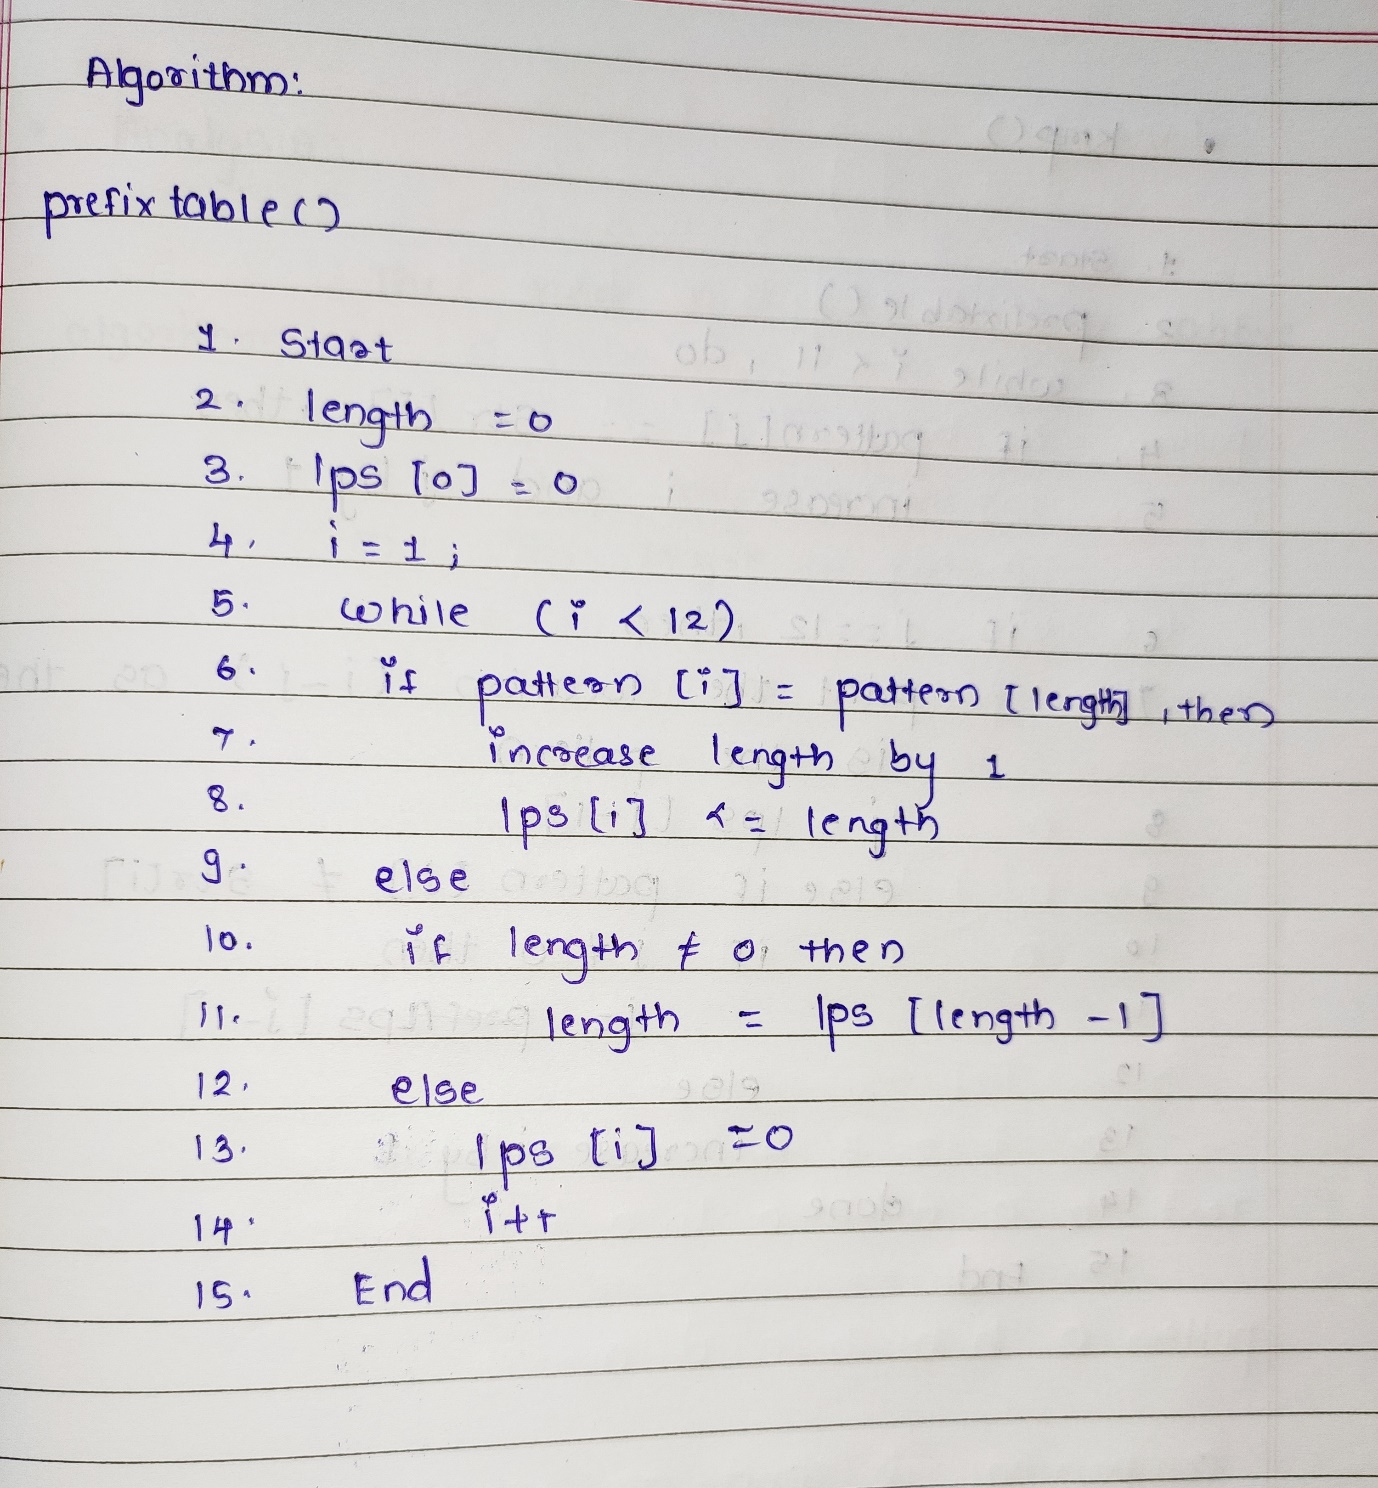 Algorithm:
prefix table()
1. Start
2. length = 0
3. lps [0] = 0
4. i = 1;
5. while (i < 12)
6. if pattern [i] = pattern [length], then
7. increase length by 1
8. lps [i] <= length
9. else
10. if length ≠ 0, then
11. length = lps [length -1]
12. else
13. lps [i] = 0
14. i++
15. End